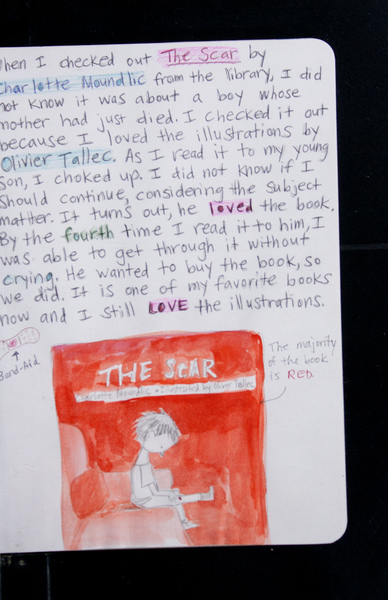 When I checked out The Scar by
Charlotte Moundlic from the library, I did
not know it was about a boy whose
mother had just died. I checked it out
because I loved the illustrations by
Olivier Tallec. As I read it to my young
son, I choked up. I did not know if I
should continue, considering the subject
matter. It turns out, he loved the book.
By the fourth time I read it to him, I
was able to get through it without
crying. He wanted to buy the book, so
we did. It is one of my favorite books
now and I still LOVE the illustrations.
Band-Aid
THE SCAR
Charlotte Moundlic • Illustrated by Olivier Tallec
The majority
of the book
is RED.